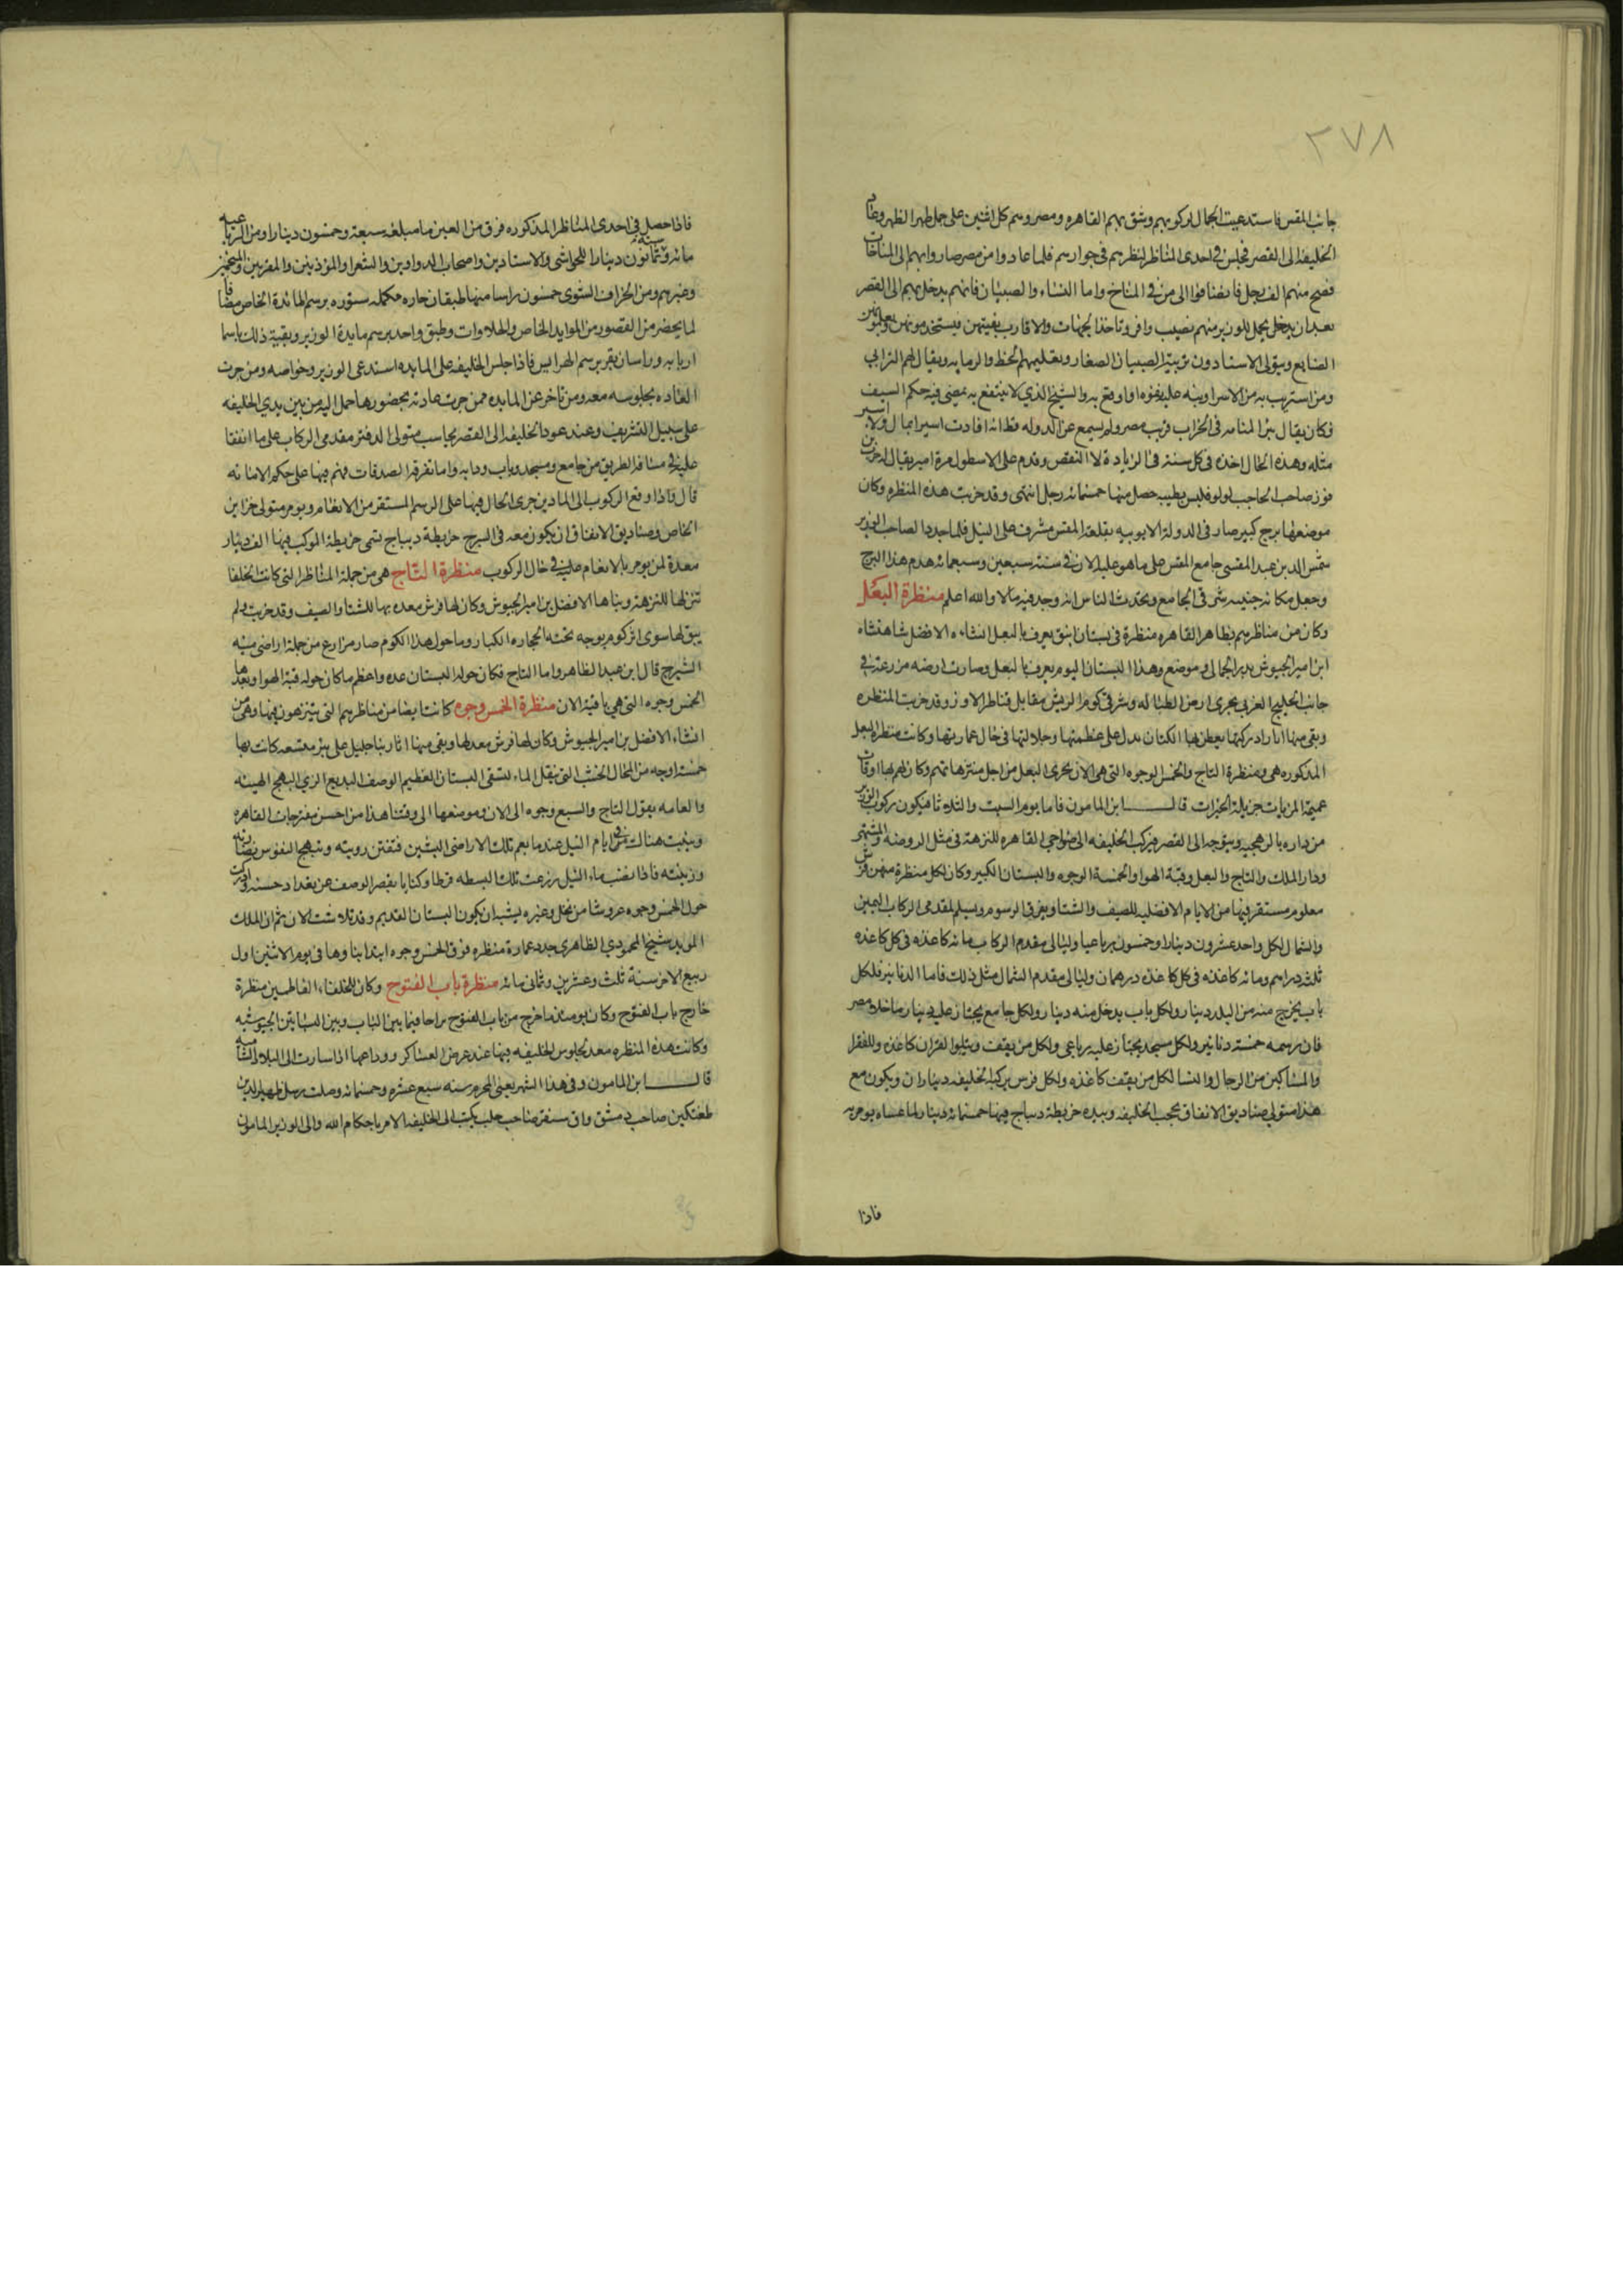 ٢٧٨
جانب المقس فاستدعيت الجمال لركوبهم وشق بهم القاهره ومصر وهم كل اثنين على جمل ظهرا لظهر وعاد
الخليفة الى القصر فجلس في احدى المناظر لنظرهم في جوازهم فلما عادوا من مصر صاروا بهم الى المناخات
فصح منهم الف رجل فانضافوا الى من في المناخ واما النساء والصبيان فانهم يدخل بهم الى القصر
بعد ان يدخل يحمل للوزير منهم نصيب وافر وتاخذ الجهات والاقارب بقيتهن فيستخدمونهن ويعلمونهن
الصنايع ويتولى الاستادون تربية الصبيان الصغار وتعليمهم الخط والرمايه ويقال لهم الترابي
ومن استريب به من الاسرا ونبه عليه بقوه او اوقع به والشيخ الذي لا ينتفع به يمضى فيه حكم السيف
فكان يقال بئر المنامه في الخراب قريب مصر ولم يسمع عن الدوله قط انها فادت اسيرا بمال ولا باسير
مثله وهذه الحال اخذه في كل سنة في الزيادة لا النقص وقدم على الاسطول مرة امير يقال له حرب بن
فوز صاحب الحاجب لولو فلبس بطيبه حصل منها خمسمائة رجل انتهى وقد خربت هذه المنظره وكان
موضعها برج كبير صار في الدولة الايوبيه بقلعة المقس مشرف على النيل فلما جدد الصاحب الوزير
شمس الدين عبد المقسي جامع المقس على ما هو عليه الان في سنة سبعين وسبعمائة هدم هذا البرج
وجعل مكانه جنينه شرقي الجامع وتحدث الناس انه وجد فيه مالا والله اعلم منظرة البعل
وكان من مناظرهم بظاهر القاهره منظرة في بستان انيق يعرف بالبعل انشاه الافضل شاهنشاه
ابن امير الجيوش بدر الجمالي وموضع وهذا البستان اليوم يعرف بالبعل وصارت ارضه مزرعة في
جانب الخليج الغربي بحرى ارض الطباله وشرقي كوم الريش مقابل قناطر الاوز وقد خربت المنظره
وبقي منها اثار ادركتها يعطن بها الكتان يدل على عظمتها وجلالتها في حال عمارتها وكانت منظرة البعل
المذكوره هي ومنظرة التاج والخمس الوجوه التي هي الان بحري البعل من اجل منتزهاتهم وكان لهم بها اوقات
عميمة المزيات جزيلة الخيرات قال ابن المامون فاما يوم السبت والثلاثا فيكون ركوب الوزير
من داره بالرهجيه ويتوجه الى القصر فيركب الخليفه الى ضواحي القاهره للنزهة في مثل الروضه والمشتهى
ودار الملك والتاج والبعل وقبة الهوا والخمسة الوجوه والبستان الكبير وكان لكل منظرة منهن فرش
معلوم مستقر فيها من الايام الافضليه للصيف والشتا ويفرق الرسوم ويسلم لمقدمي الركاب اليمين
والشمال لكل واحد عشرون دينارا وخمسون رباعيا وليالي مقدم الركاب مائة كاغذه في كل كاغذه
ثلثه دراهم ومائة كاغذه في كل كاغذه درهمان وليالي مقدم الشمال مثل ذلك فاما الدنانير فلكل
باب يخرج منه من البلد دينار ولكل باب يدخل منه دينار ولكل جامع يجتاز عليه دينار ما خلا مصر
فان رسمه خمسة دنانير ولكل مسجد يجتاز عليه رباعي ولكل من يقف ويتلوا القران كاغذه وللفقرا
والمساكين من الرجال والنسا لكل من يقف كاغذه ولكل فرس يركبه الخليفه ديناران ويكون مع
هذا متولي صناديق الانفاق بحجب الخليفه وبيده خريطة ديباج فيها خمسمائة دينار لما عساه يومر به
فاذا
فاذا حصل في احدى المناظر المذكوره فرق من العين ما مبلغه سبعة وخمسون دينارا ومن الرباعيه
مائة وستة وثمانون دينارا للحواشي والاستادين واصحاب الدواوين والشعرا والموذنين والمقربين والمنجمين
وغيرهم ومن الخراف الشوي خمسون راسا منها طبقان حاره مكمله مستوره برسم المائدة الخاص مضافا
لما يحضر من القصور من الموايد الخاص والحلاوات وطبق واحد برسم مايدة الوزير وبقية ذلك باسما
اربابه وراسان بقر برسم الهرايس فاذا جلس الخليفه على المايده استدعى الوزير وخواصه ومن جرت
العاده بجلوسه معه ومن تاخر عن المايده ممن جرت عادته بحضورها حمل اليه من بين يدي الخليفه
على سبيل التشريف وعند عود الخليفه الى القصر يحاسب متولى الدفتر مقدمي الركاب على ما انفقا
عليه في مسافة الطريق من جامع ومسجد وباب ودابه واما تفرقة الصدقات فهم فيها على حكم الامانه
قال فاذا وقع الركوب الى الميادين جرى الحال فيها على الرسم المستقر من الانعام ويومر متولى خزاين
الخاص وصناديق الانفاق ان يكون معه في السرج خريطة ديباج تسمى خريطة الموكب فيها الف دينار
معدة لمن يومر بالانعام عليه في حال الركوب منظرة التاج هي من جملة المناظر التي كانت الخلفا
تنزلها للنزهة وبناها الافضل بن امير الجيوش وكان لها فرش معده بها للشتا والصيف وقد خربت ولم
يبق لها سوى اثر كوم يوجه تحته الحجاره الكبار وما حول هذا الكوم صار مزارع من جملة اراضي منيه
الشيرج قال ابن عبد الظاهر واما التاج فكان حوله البستان عده واعظم ما كان حوله قبة الهوا وبعدها
الخمس وجوه التي هي باقية الان منظرة الخمس وجوه كانت ايضا من مناظرهم التي يتنزهون فيها وهي من
انشاء الافضل بن امير الجيوش وكان لها فرش معد لها وبقي منها اثار بنا جليل على بئر متسعه كانت بها
خمسة اوجه من المحال الخشب التي تنقل الماء لسقى البستان العظيم الوصف البديع الزي البهج الهيئه
والعامه يقول التاج والسبع وجوه الى الان وموضعها الى وقتنا هذا من احسن مفترجات القاهره
وينبت هناك في ايام النيل عندما يعم تلك الاراضي البشنين فتفتن رويته وتبهج النفوس نضارته
وزينته فاذا نضب ماء النيل زرعت تلك البسطه قرطا وكتانا يقصر الوصف عن تعداد حسنه وادركت
حول الخمس وجوه غروسا من نخل وغيره يشبه ان يكون البستان القديم وقد تلاشت الان ثم ان الملك
المويد شيخ المحمودي الظاهري جدد عمارة منظره فوق الخمس وجوه ابتدا بناوها في يوم الاثنين اول
ربيع الاخر سنة ثلث وعشرين وثماني مائة منظرة باب الفتوح وكان للخلفاء الفاطميين منظرة
خارج باب الفتوح وكان يومئذ ما خرج من باب الفتوح براحا فيما بين الباب وبين البساتين الجيوشيه
وكانت هذه المنظره معد لجلوس الخليفه فيها عند عرض العساكر ووداعها اذا سارت الى البلاد الشاميه
قال ابن المامون وفي هذا الشهر يعني المحرم سنه سبع عشره وخمسمائة وصلت رسل ظهير الدين
طغتكين صاحب دمشق واق سنقر صاحب حلب بكتب الى الخليفه الامر باحكام الله والى الوزير المامون